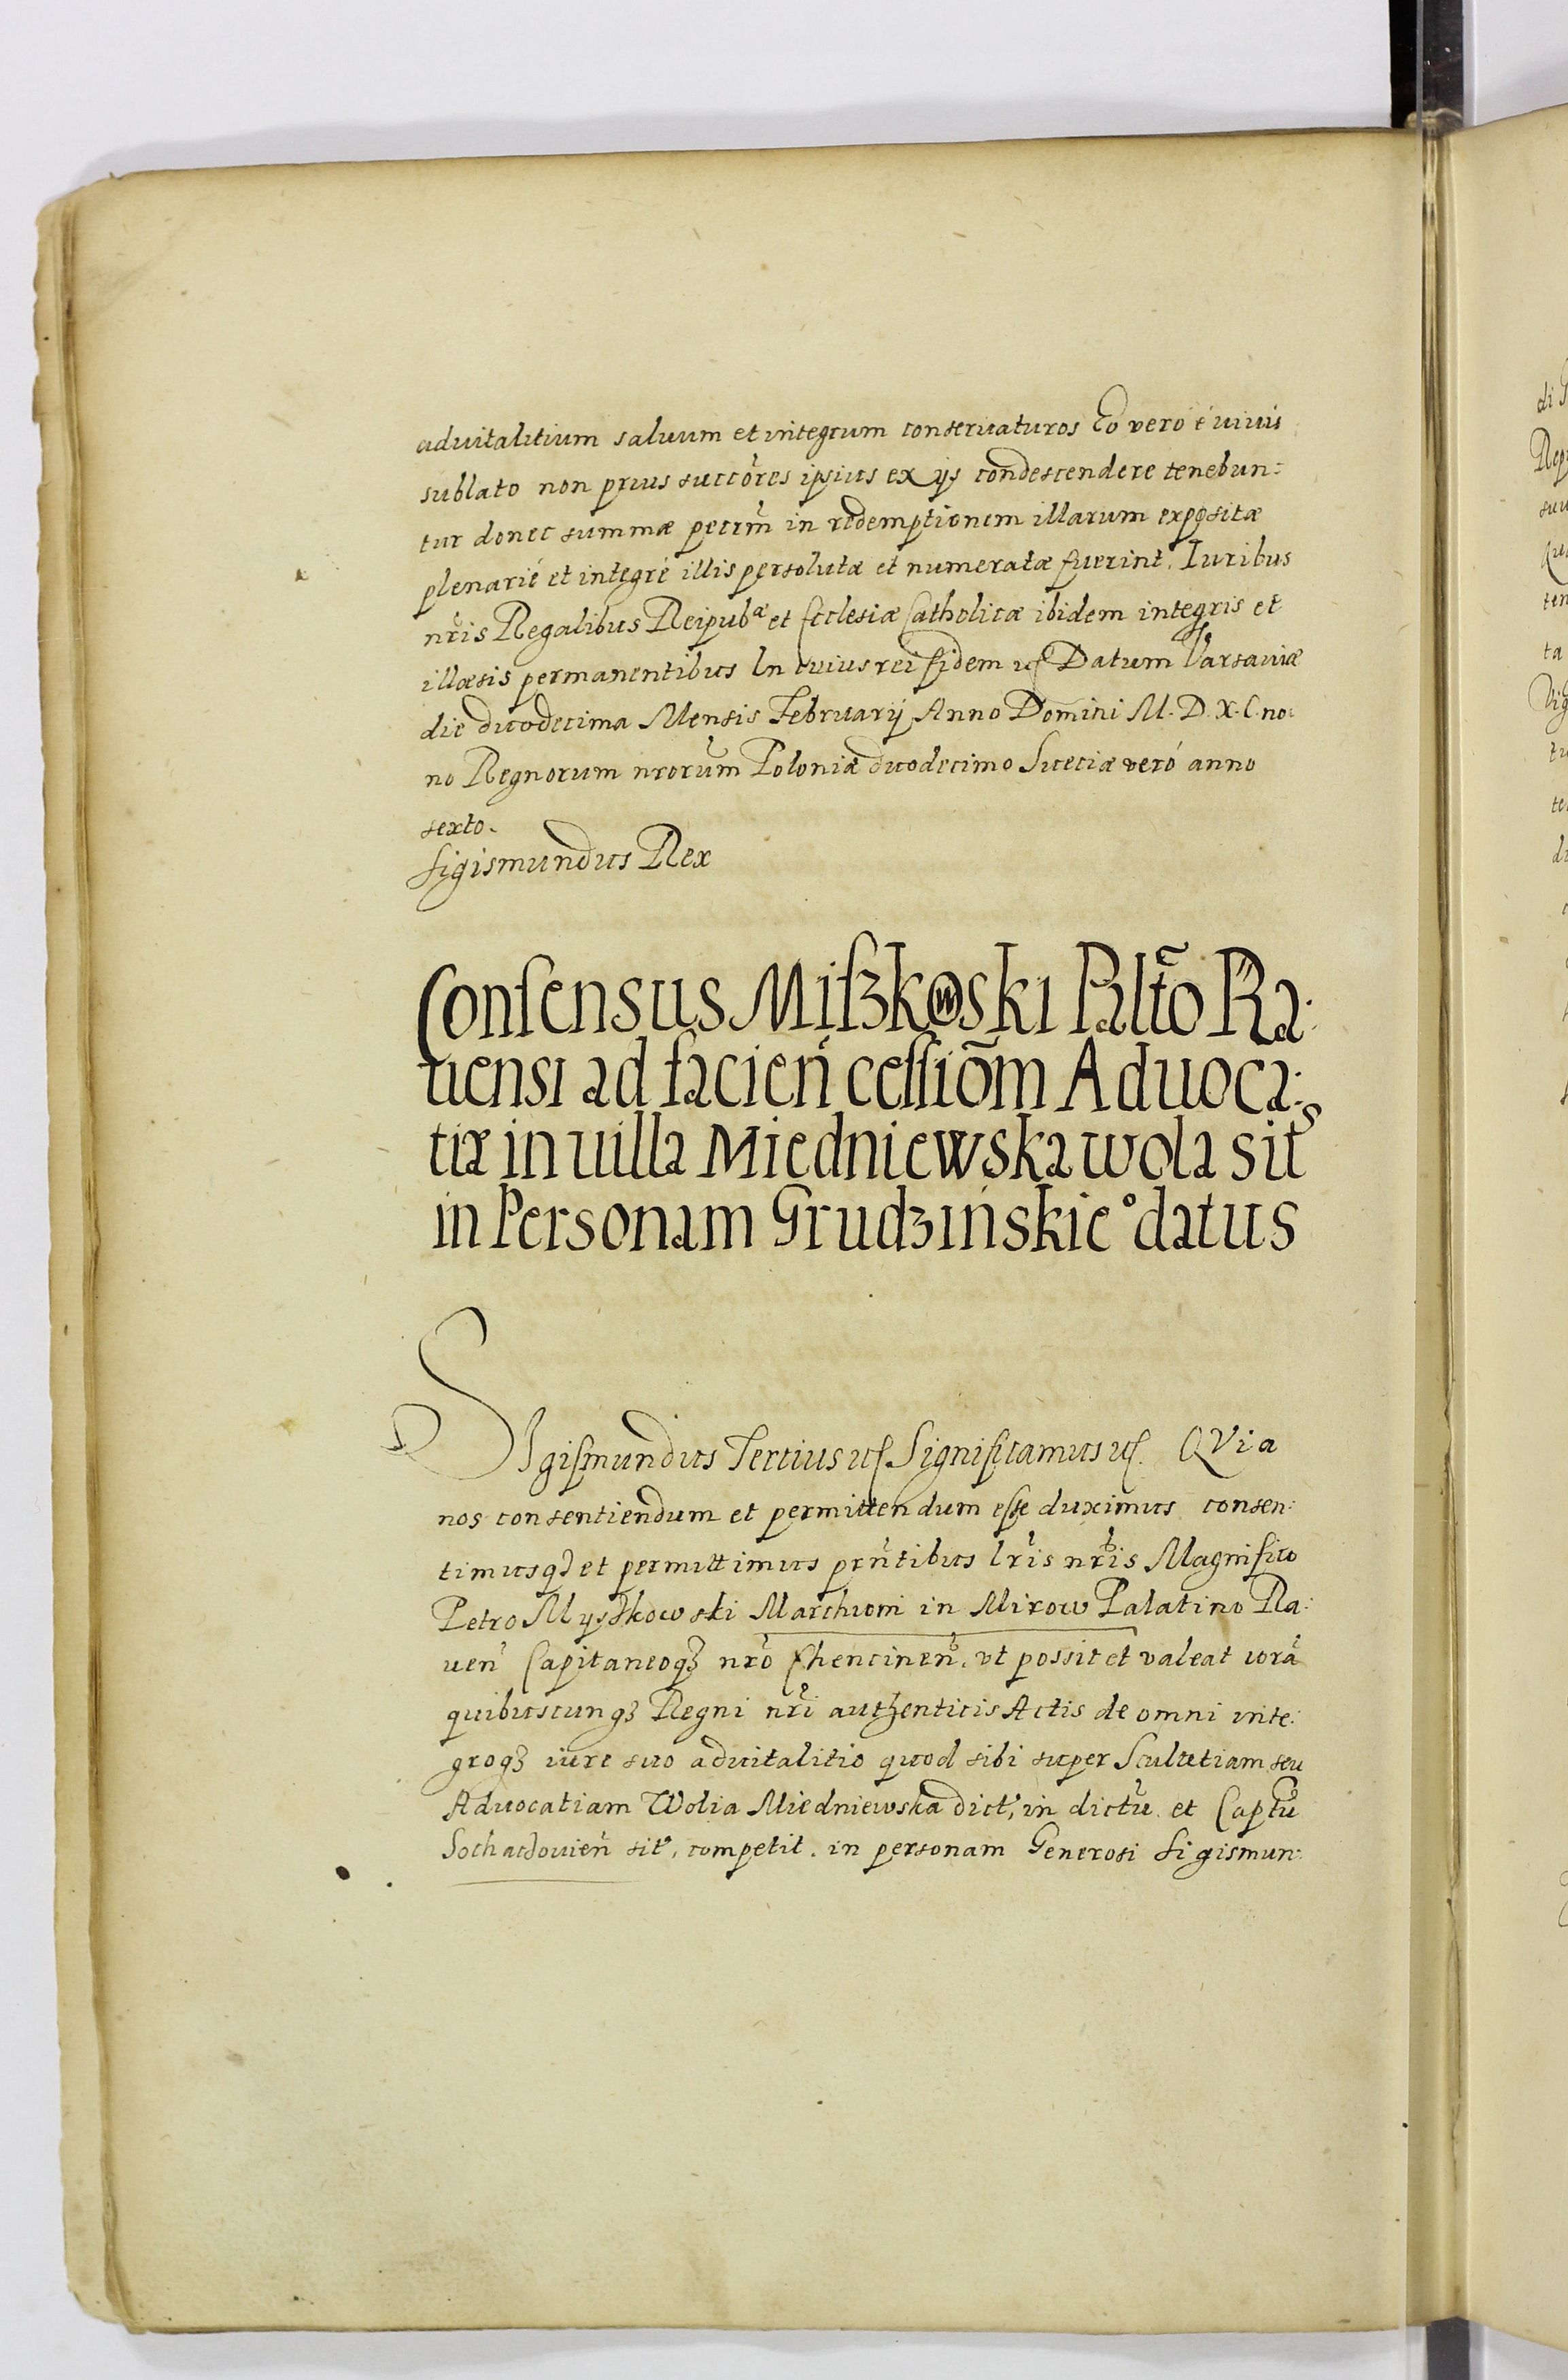 advitalitium saluum et integrum conseruaturos Eo vero è viuis
sublato non prius succōres ipsius ex ijs condescendere tenebun:
tur donec summæ pecrm̃ in redemptionem illarum expositæ
plenariè et integrè illis persolutæ et numeratæ fuerint. Iuribus
nr̃is Regalibus Reipubᵃᵉ et Ecclesiæ Catholicæ ibidem integris et
illæsis permanentibus In cuius rei fidem etc Datum Varsauiæ
die duodecima Mensis Februarij Anno Domini M. D. X. C. no:
no Regnorum nrorum̃ Poloniæ duodecimo Sueciæ veró anno
sexto.
Sigismundus Rex
Consensus Miszkowski Paltño Ra:
uiensi ad facien̄ cessiõm Aduoca:
tiæ in uilla Miedniewska wola sit˜
in Personam Grudzinskie° datus
SIgismundus Tertius etc Significamus etc. QVia
nos consentiendum et permittendum esse duximus consen:
timusqȝ et permittimus prn̄tibus lr̄is nr̄is Magnifico
Petro Myszkowski Marchioni in Mirow Palatino Ra:
uen̄ Capitaneoqȝ nrō Chencinen̄. vt possit et valeat corā
quibuscunqȝ Regni nr̄i authenticis Actis de omni inte:
groqȝ iure suo aduitalitio quod sibi super Scultetiam seu
Aduocatiam Wolia Miedniewska dict˜, in dictū et Captū
Sochaczouien̄ sit˜, competit. in personam Generosi Sigismun: